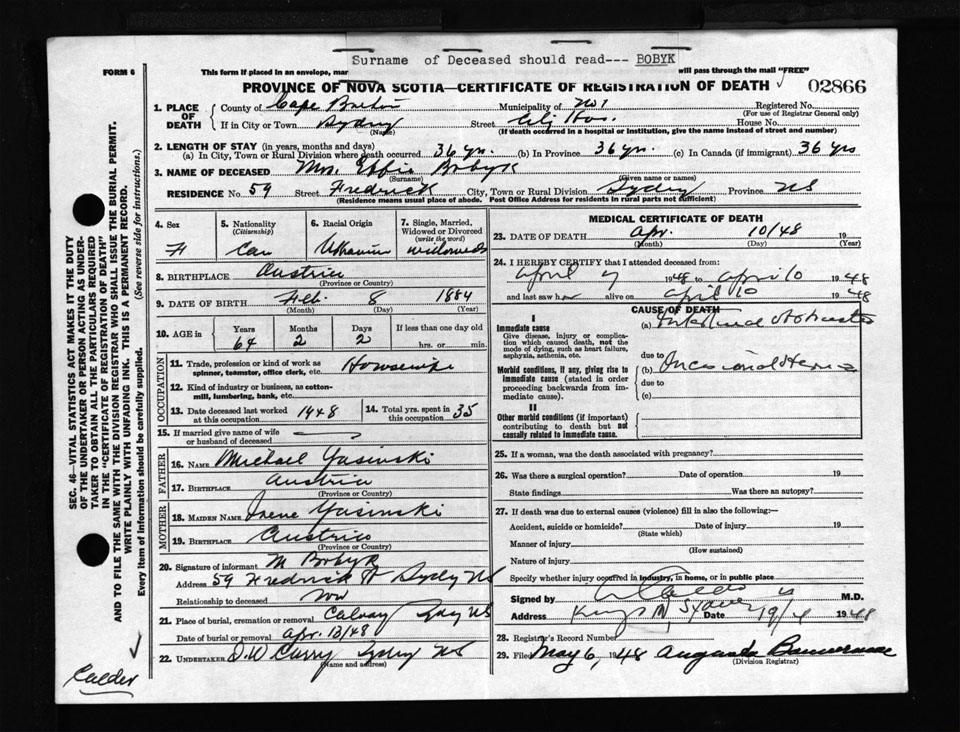 Surname of Deceased should read--- BOBYK
FORM 6
This form if placed in an envelope, mar will pass through the mail "FREE"
PROVINCE OF NOVA SCOTIA—CERTIFICATE OF REGISTRATION OF DEATH 02866
1. PLACE OF DEATH
County of Cape Breton Municipality of No 1 Registered No.
(For use of Registrar General only)
If in City or Town Sydney Street City Hos. House No.
(Name) (If death occurred in a hospital or institution, give the name instead of street and number)
2. LENGTH OF STAY (in years, months and days)
(a) In City, Town or Rural Division where death occurred 36 yrs. (b) In Province 36 yrs. (c) In Canada (if immigrant) 36 yrs
3. NAME OF DECEASED Mrs. Effie Bobyk
(Surname) (Given name or names)
RESIDENCE No. 59 Street Fredrick City, Town or Rural Division Sydney Province NS
(Residence means usual place of abode. Post Office Address for residents in rural parts not sufficient)
4. Sex
F
5. Nationality
(Citizenship)
Can
6. Racial Origin
Ukranian
7. Single, Married, Widowed or Divorced
(write the word)
Widowed
8. BIRTHPLACE Austria
(Province or Country)
9. DATE OF BIRTH Feb. 8 1884
(Month) (Day) (Year)
10. AGE in
Years Months Days If less than one day old
64 2 2 hrs. or min.
OCCUPATION
11. Trade, profession or kind of work as spinner, teamster, office clerk, etc. Housewife
12. Kind of industry or business, as cotton-mill, lumbering, bank, etc.
13. Date deceased last worked at this occupation 1948
14. Total yrs. spent in this occupation 35
15. If married give name of wife or husband of deceased
FATHER
16. NAME Michael Yasinski
17. BIRTHPLACE Austria
(Province or Country)
MOTHER
18. MAIDEN NAME Irene Yasinski
19. BIRTHPLACE Austria
(Province or Country)
20. Signature of informant M Bobyk
Address 59 Fredrick St Sydney NS
Relationship to deceased
21. Place of burial, cremation or removal Calvary Sydney NS
Date of burial or removal Apr. 13/48
22. UNDERTAKER D.W. Curry Sydney NS
(Name and address)
MEDICAL CERTIFICATE OF DEATH
23. DATE OF DEATH Apr. 10/48 19
(Month) (Day) (Year)
24. I HEREBY CERTIFY that I attended deceased from:
April 7 1948 to April 10 1948
and last saw her alive on April 10 1948
CAUSE OF DEATH
I
Immediate cause
Give disease, injury or complication which caused death, not the mode of dying, such as heart failure, asphyxia, asthenia, etc.
(a) Intestinal Obstruction
due to
Morbid conditions, if any, giving rise to immediate cause (stated in order proceeding backwards from immediate cause).
(b) Incisional Hernia
due to
(c)
II
Other morbid conditions (if important) contributing to death but not causally related to immediate cause.
25. If a woman, was the death associated with pregnancy?
26. Was there a surgical operation? Date of operation 19
State findings Was there an autopsy?
27. If death was due to external causes (violence) fill in also the following:—
Accident, suicide or homicide? Date of injury 19
(State which)
Manner of injury
(How sustained)
Nature of injury
Specify whether injury occurred in industry, in home, or in public place
Signed by M.D.
Address Sydney Date 19/4 1948
28. Registrar's Record Number
29. Filed May 6, 1948
(Division Registrar)
SEC. 46—VITAL STATISTICS ACT MAKES IT THE DUTY
OF THE UNDERTAKER OR PERSON ACTING AS UNDER-
TAKER TO OBTAIN ALL THE PARTICULARS REQUIRED
IN THE "CERTIFICATE OF REGISTRATION OF DEATH"
AND TO FILE THE SAME WITH THE DIVISION REGISTRAR WHO SHALL ISSUE THE BURIAL PERMIT.
WRITE PLAINLY WITH UNFADING INK. THIS IS A PERMANENT RECORD.
Every item of information should be carefully supplied. (See reverse side for instructions.)
Calder